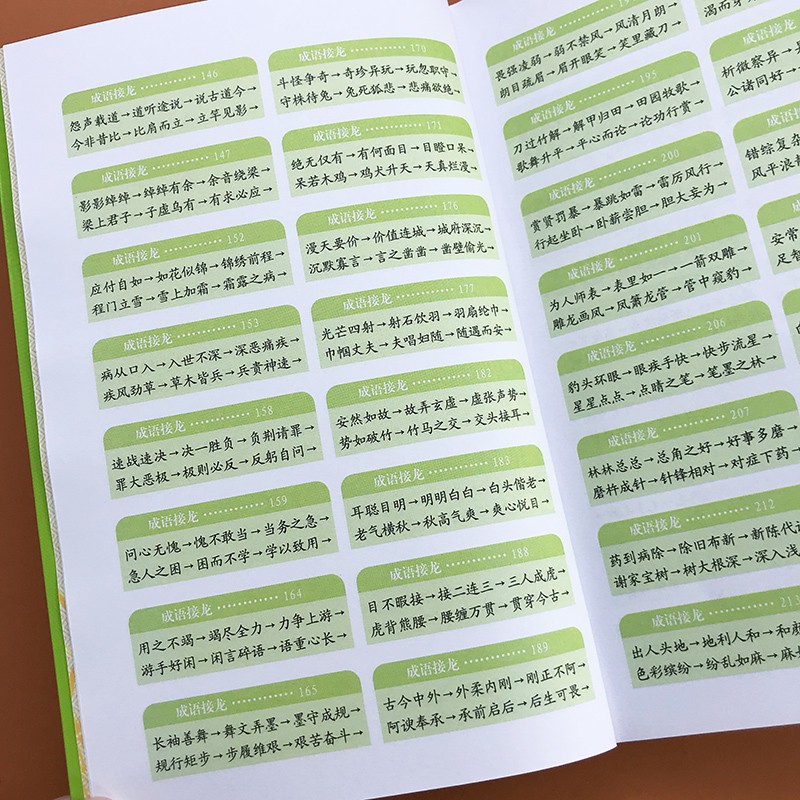 成语接龙 ············ 146
怨声载道→道听途说→说古道今→
今非昔比→比肩而立→立竿见影→
成语接龙 ············ 147
影影绰绰→绰绰有余→余音绕梁→
梁上君子→子虚乌有→有求必应→
成语接龙 ············ 152
应付自如→如花似锦→锦绣前程→
程门立雪→雪上加霜→霜露之病→
成语接龙 ············ 153
病从口入→入世不深→深恶痛疾→
疾风劲草→草木皆兵→兵贵神速→
成语接龙 ············ 158
速战速决→决一胜负→负荆请罪→
罪大恶极→极则必反→反躬自问→
成语接龙 ············ 159
问心无愧→愧不敢当→当务之急→
急人之困→困而不学→学以致用→
成语接龙 ············ 164
用之不竭→竭尽全力→力争上游→
游手好闲→闲言碎语→语重心长→
成语接龙 ············ 165
长袖善舞→舞文弄墨→墨守成规→
规行矩步→步履维艰→艰苦奋斗→
成语接龙 ············ 170
斗怪争奇→奇珍异玩→玩忽职守→
守株待兔→兔死狐悲→悲痛欲绝→
成语接龙 ············ 171
绝无仅有→有何面目→目瞪口呆→
呆若木鸡→鸡犬升天→天真烂漫→
成语接龙 ············ 176
漫天要价→价值连城→城府深沉→
沉默寡言→言之凿凿→凿壁偷光→
成语接龙 ············ 177
光芒四射→射石饮羽→羽扇纶巾→
巾帼丈夫→夫唱妇随→随遇而安→
成语接龙 ············ 182
安然如故→故弄玄虚→虚张声势→
势如破竹→竹马之交→交头接耳→
成语接龙 ············ 183
耳聪目明→明明白白→白头偕老→
老气横秋→秋高气爽→爽心悦目→
成语接龙 ············ 188
目不暇接→接二连三→三人成虎→
虎背熊腰→腰缠万贯→贯穿今古→
成语接龙 ············ 189
古今中外→外柔内刚→刚正不阿→
阿谀奉承→承前启后→后生可畏→
成语接龙
畏强凌弱→弱不禁风→风清月朗→
朗目疏眉→眉开眼笑→笑里藏刀→
成语接龙 ············ 195
刀过竹解→解甲归田→田园牧歌→
歌舞升平→平心而论→论功行赏→
成语接龙 ············ 200
赏贤罚暴→暴跳如雷→雷厉风行→
行起坐卧→卧薪尝胆→胆大妄为→
成语接龙 ············ 201
为人师表→表里如一→一箭双雕→
雕龙画凤→凤箫龙管→管中窥豹→
成语接龙 ············ 206
豹头环眼→眼疾手快→快步流星→
星星点点→点睛之笔→笔墨之林→
成语接龙 ············ 207
林林总总→总角之好→好事多磨→
磨杵成针→针锋相对→对症下药→
成语接龙 ············ 212
药到病除→除旧布新→新陈代谢
谢家宝树→树大根深→深入浅
成语接龙 ············ 213
出人头地→地利人和→和颜
色彩缤纷→纷乱如麻→麻
渴而穿
成语接龙
析微察异→
公诸同好→
成语接龙
错综复杂
风平浪静
成语接龙
安常
足智